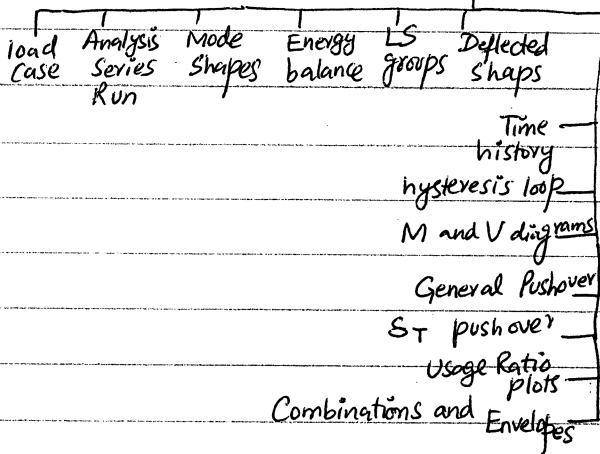 load
Case
Analysis
Series
Run
Mode
Shapes
Energy
balance
LS
groups
Deflected
shaps
Time
history
hysteresis loop
M and V diagrams
General Pushover
ST pushover
Usage Ratio
plots
Combinations and
Envelopes